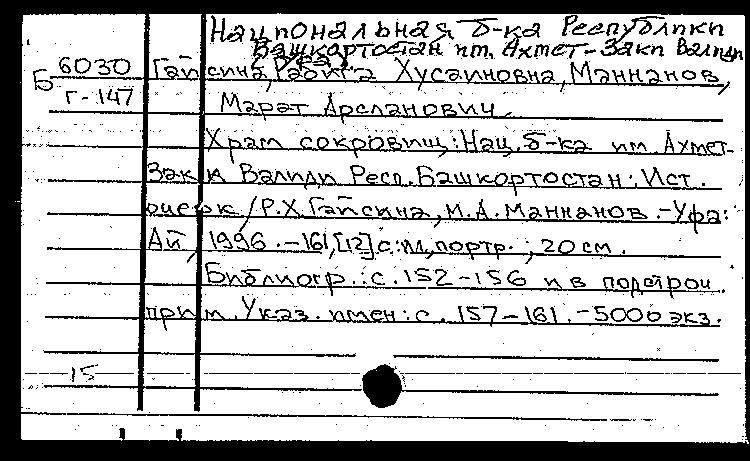 Национальная б-ка Республики
Башкортостан им. Ахмет-Заки Валиди
(Уфа)
Б 6030 Гайсина, Рабига Хусаиновна, Маннанов,
Г-147 Марат Арсланович.
Храм сокровищ: Нац. б-ка им. Ахмет-
Заки Валиди Респ. Башкортостан: Ист.
очерк / Р.Х. Гайсина, М.А. Маннанов. - Уфа:
Ай, 1996. - 161, [12] с.: ил, портр.; 20 см.
Библиогр.: с. 152-156 и в подстроч.
прим. Указ. имен: с. 157-161. - 5000 экз.
15